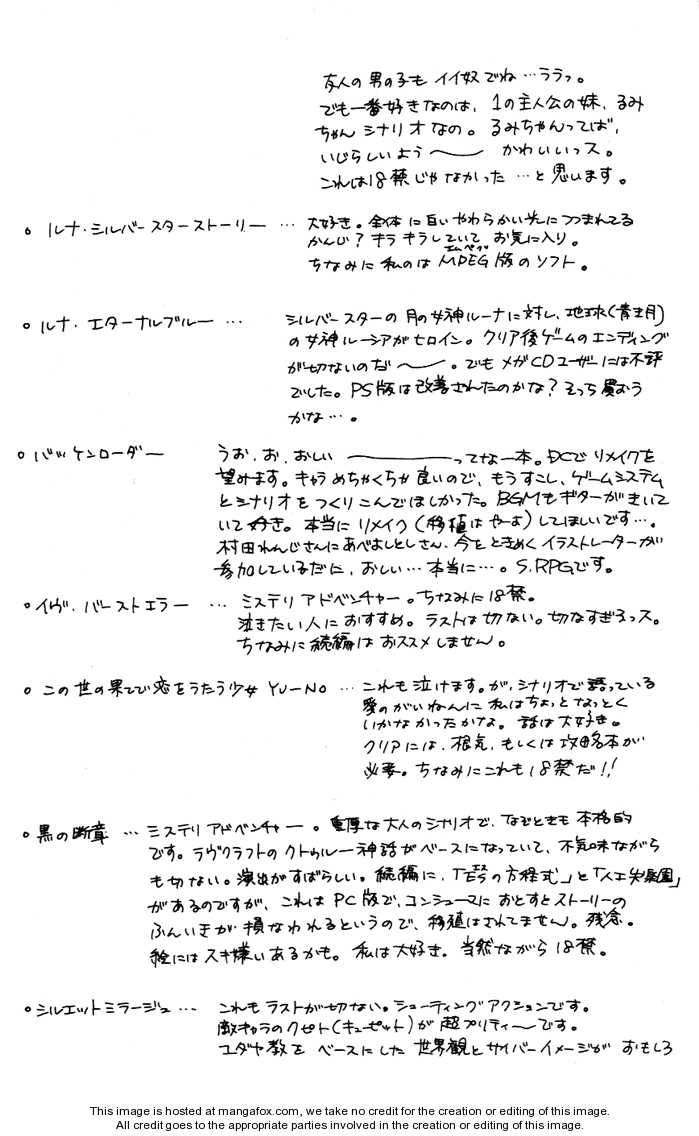 友人の男の子も イイ奴でね…ララっ。
でも一番好きなのは、1の主人公の妹、るみ
ちゃん シナリオ なの。るみちゃんってば、
いじらしいよう〜 かわいいっス。
これは18禁じゃなかった …と思います。
○ ルナ・シルバースターストーリー … 大好き。全体に白いやわらかい光につつまれてる
かんじ？キラキラしていて、お気に入り。
エムペグ
ちなみに私のは MPEG版のソフト。
○ ルナ・エターナルブルー … シルバースターの月の女神ルーナに対し、地球(青き月)
の女神ルーシアがヒロイン。クリア後ゲームのエンディング
が切ないのだ〜。でもメガCDユーザーには不評
でした。PS版は改善されたのかな？そっち買おう
かな…。
○ バッケンローダー うお、お、おしい ―ってな一本。DCでリメイクを
望みます。キャラめちゃくちゃ良いので、もうすこし、ゲームシステム
とシナリオをつくりこんでほしかった。BGMもギターがきいて
いて好き。本当にリメイク(移植はやーよ)してほしいです…。
村田れんじさんにあべよしとしさん、今をときめくイラストレーターが
参加しているだに、おしい…本当に…。S.RPGです。
○ イヴ・バーストエラー … ミステリアドベンチャー。ちなみに18禁。
泣きたい人におすすめ。ラストは切ない。切なすぎるっス。
ちなみに続編はおススメしません。
○ この世の果てで恋をうたう少女 YU-NO … これも泣けます。が、シナリオで語っている
愛のがいねんに私はちょっとなっとく
いかなかったかな。話は大好き。
クリアには、根気、もしくは攻略本が
必要。ちなみにこれも18禁だ!!
○ 黒の断章 … ミステリアドベンチャー。重厚な大人のシナリオで、なぞときも本格的
です。ラヴクラフトのクトゥルー神話がベースになっていて、不気味ながら
も切ない。演出がすばらしい。続編に、「Esの方程式」と「人工失楽園」
があるのですが、これはPC版で、コンシューマにおとすとストーリーの
ふんいきが損なわれるというので、移植はされてません。残念。
絵にはスキ嫌いあるかも。私は大好き。当然ながら18禁。
○ シルエットミラージュ … これもラストが切ない。シューティングアクションです。
敵キャラのクピト(キューピット)が超プリティーです。
ユダヤ教をベースにした世界観とサイバーイメージがおもしろ
This image is hosted at mangafox.com, we take no credit for the creation or editing of this image.
All credit goes to the appropriate parties involved in the creation or editing of this image.